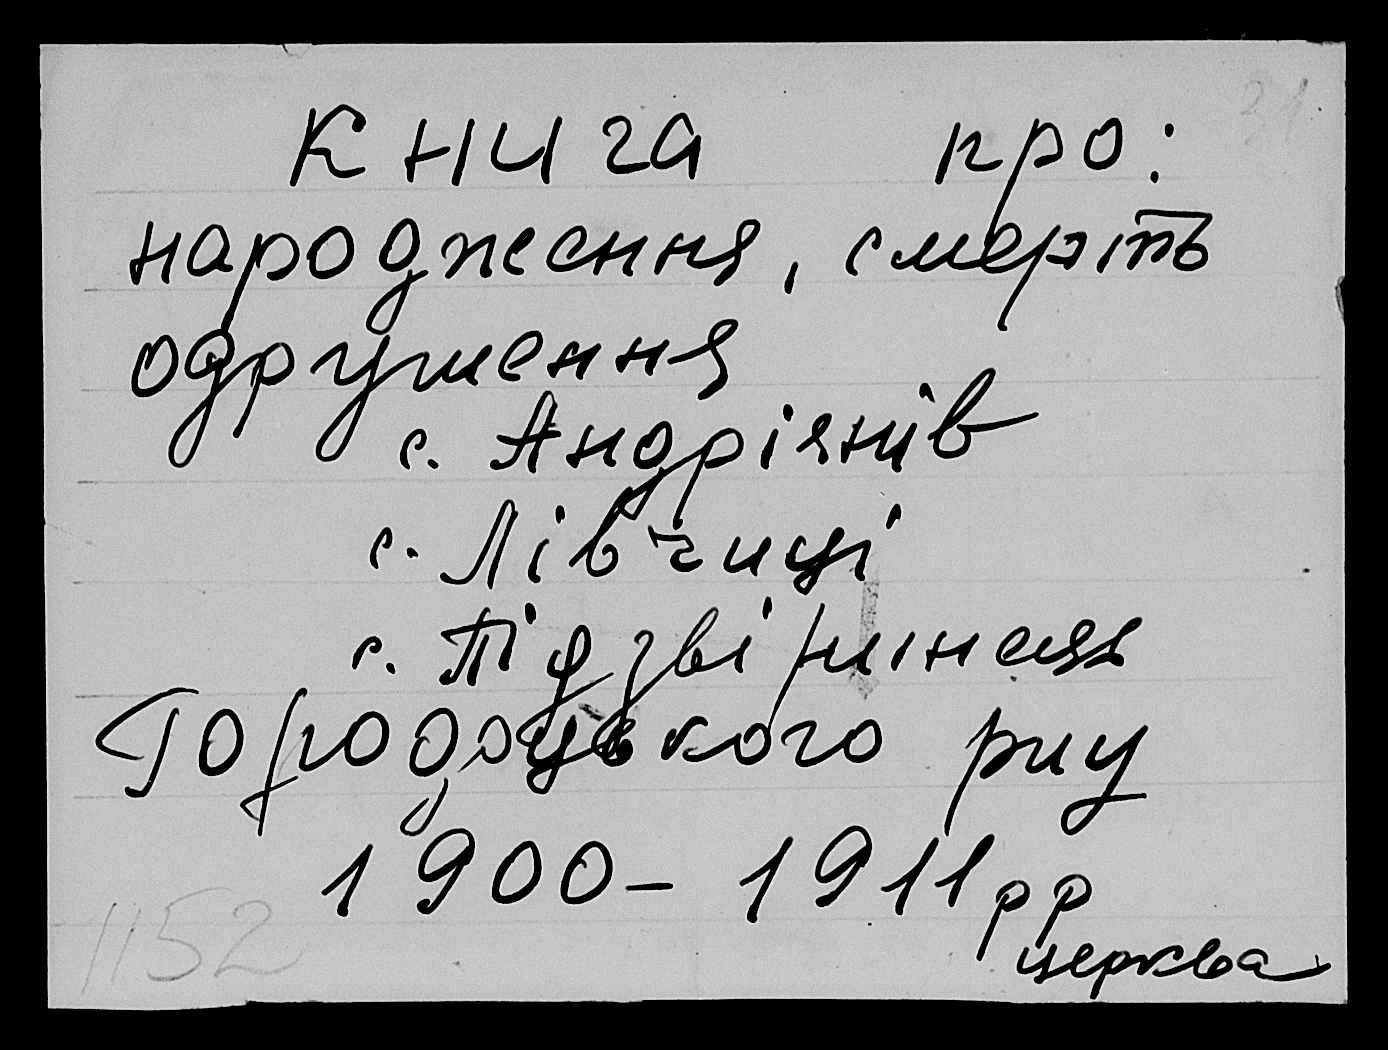 31
Книга про:
народження, смерть
одруження
с. Андріянів
с. Лівчиці
с. Підзвіринець
Городоцького р-ну
1900 – 1911 рр
церква
1152